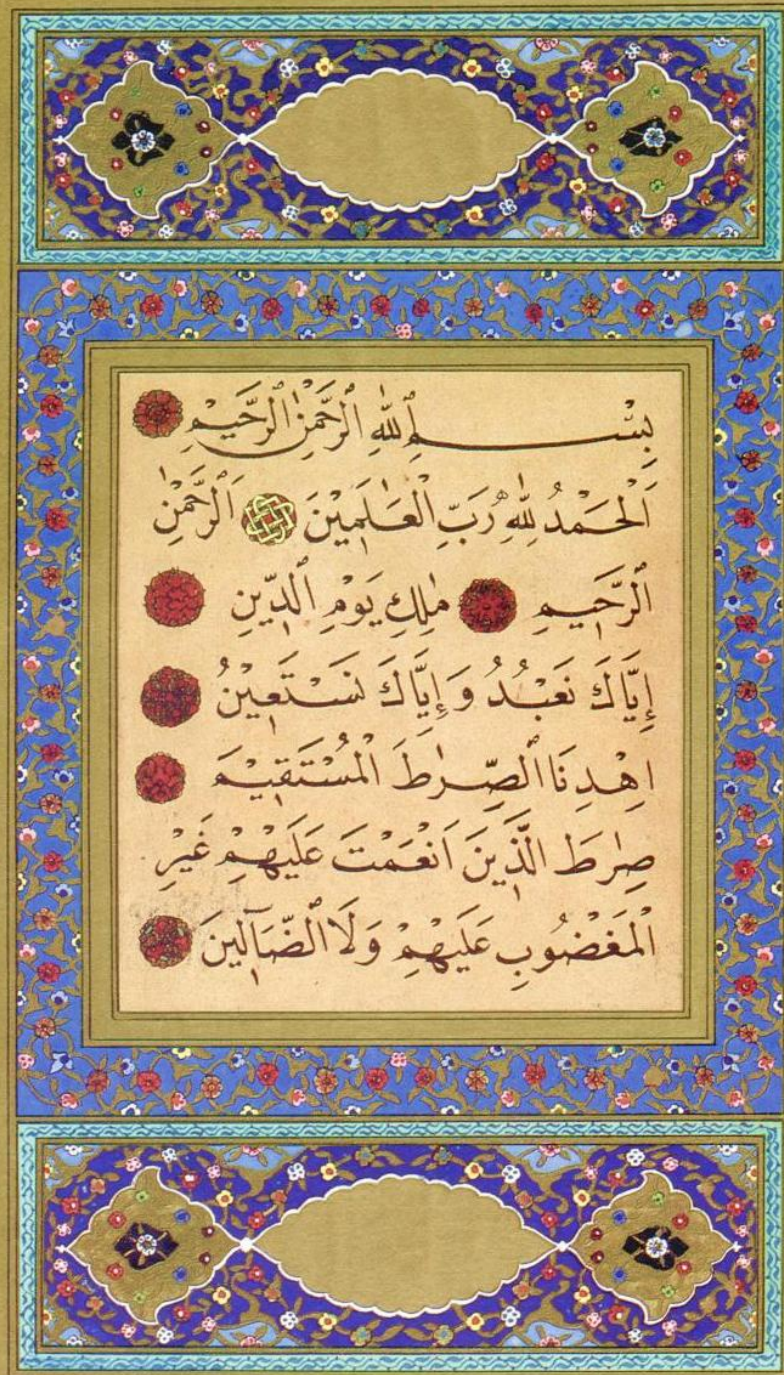 بِسْمِ ٱللّٰهِ ٱلرَّحْمٰنِ ٱلرَّحِيمِ
اَلْحَمْدُ لِلّٰهِ رَبِّ الْعَالَمِينَ اَلرَّحْمٰنِ
ٱلرَّحِيمِ مٰلِكِ يَوْمِ ٱلدِّينِ
إِيَّاكَ نَعْبُدُ وَإِيَّاكَ نَسْتَعِينُ
اهْدِنَا ٱلصِّرٰطَ الْمُسْتَقِيمَ
صِرٰطَ الَّذِينَ اَنْعَمْتَ عَلَيْهِمْ غَيْرِ
الْمَغْضُوبِ عَلَيْهِمْ وَلَا ٱلضَّآلِّينَ